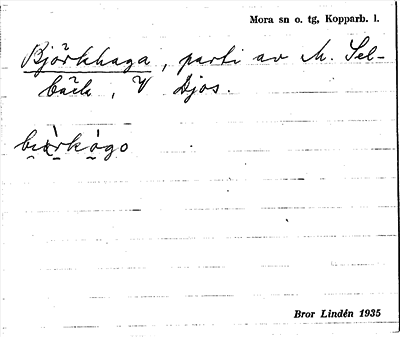 Mora sn o. tg, Kopparb. l.
Björkhaga, parti av M. Sel-
bäck, V Djos.
Bror Lindén 1935